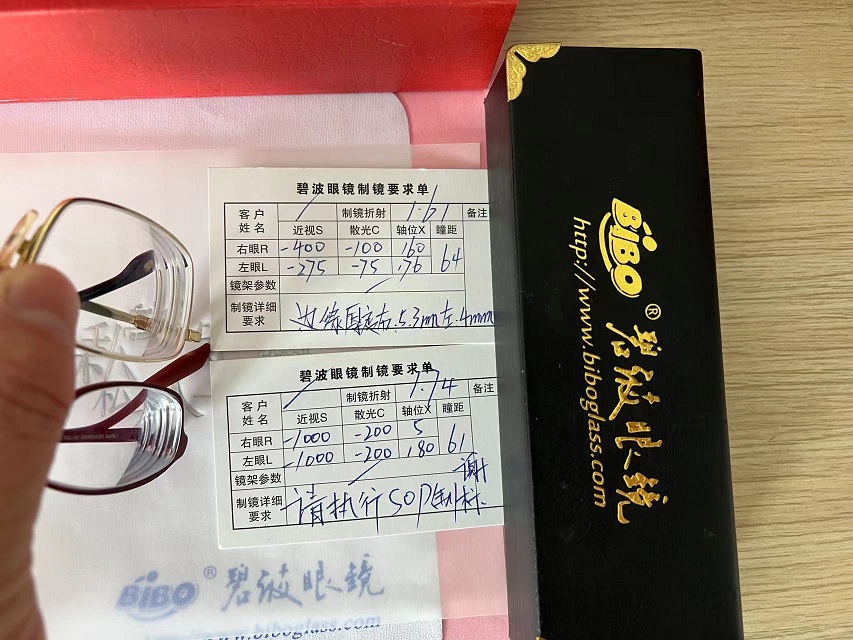 碧波眼镜制镜要求单
客户姓名 制镜折射 1.61 备注
近视S 散光C 轴位X 瞳距
右眼R -400 -100 160 64
左眼L -275 -75 176
镜架参数
制镜详细要求 边缘厚度右.5.3mm左.4mm
碧波眼镜制镜要求单
客户姓名 制镜折射 1.74 备注
近视S 散光C 轴位X 瞳距
右眼R -1000 -200 5 61
左眼L -1000 -200 180
镜架参数
制镜详细要求 请执行SOP 谢
BiBO® 碧波眼镜
www.biboglass.com
BiBO® 碧波眼镜
http://www.biboglass.com